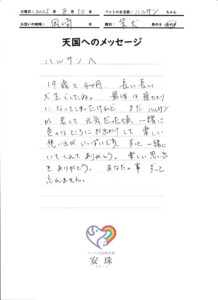 火葬日：2025年8月10日 ペットのお名前：ハルサン ちゃん
天国へのメッセージ
ハルサンへ
19歳と4か月、長い長い
犬生でしたね。最後は寝たきり
になってしまったけれど、まだハルサン
が若くて元気だった頃、一緒に
色々なところにお出かけして楽しい
想い出がいっぱいです。ずっと一緒に
いてくれてありがとう。楽しい思い出
をありがとう。あなたの事ずっと
忘れません。
安珠